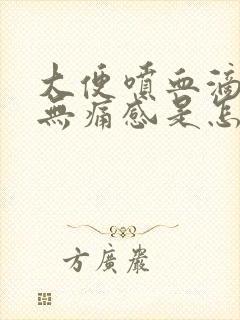 大便噴血滴
無痛感是怎
方廣嚴